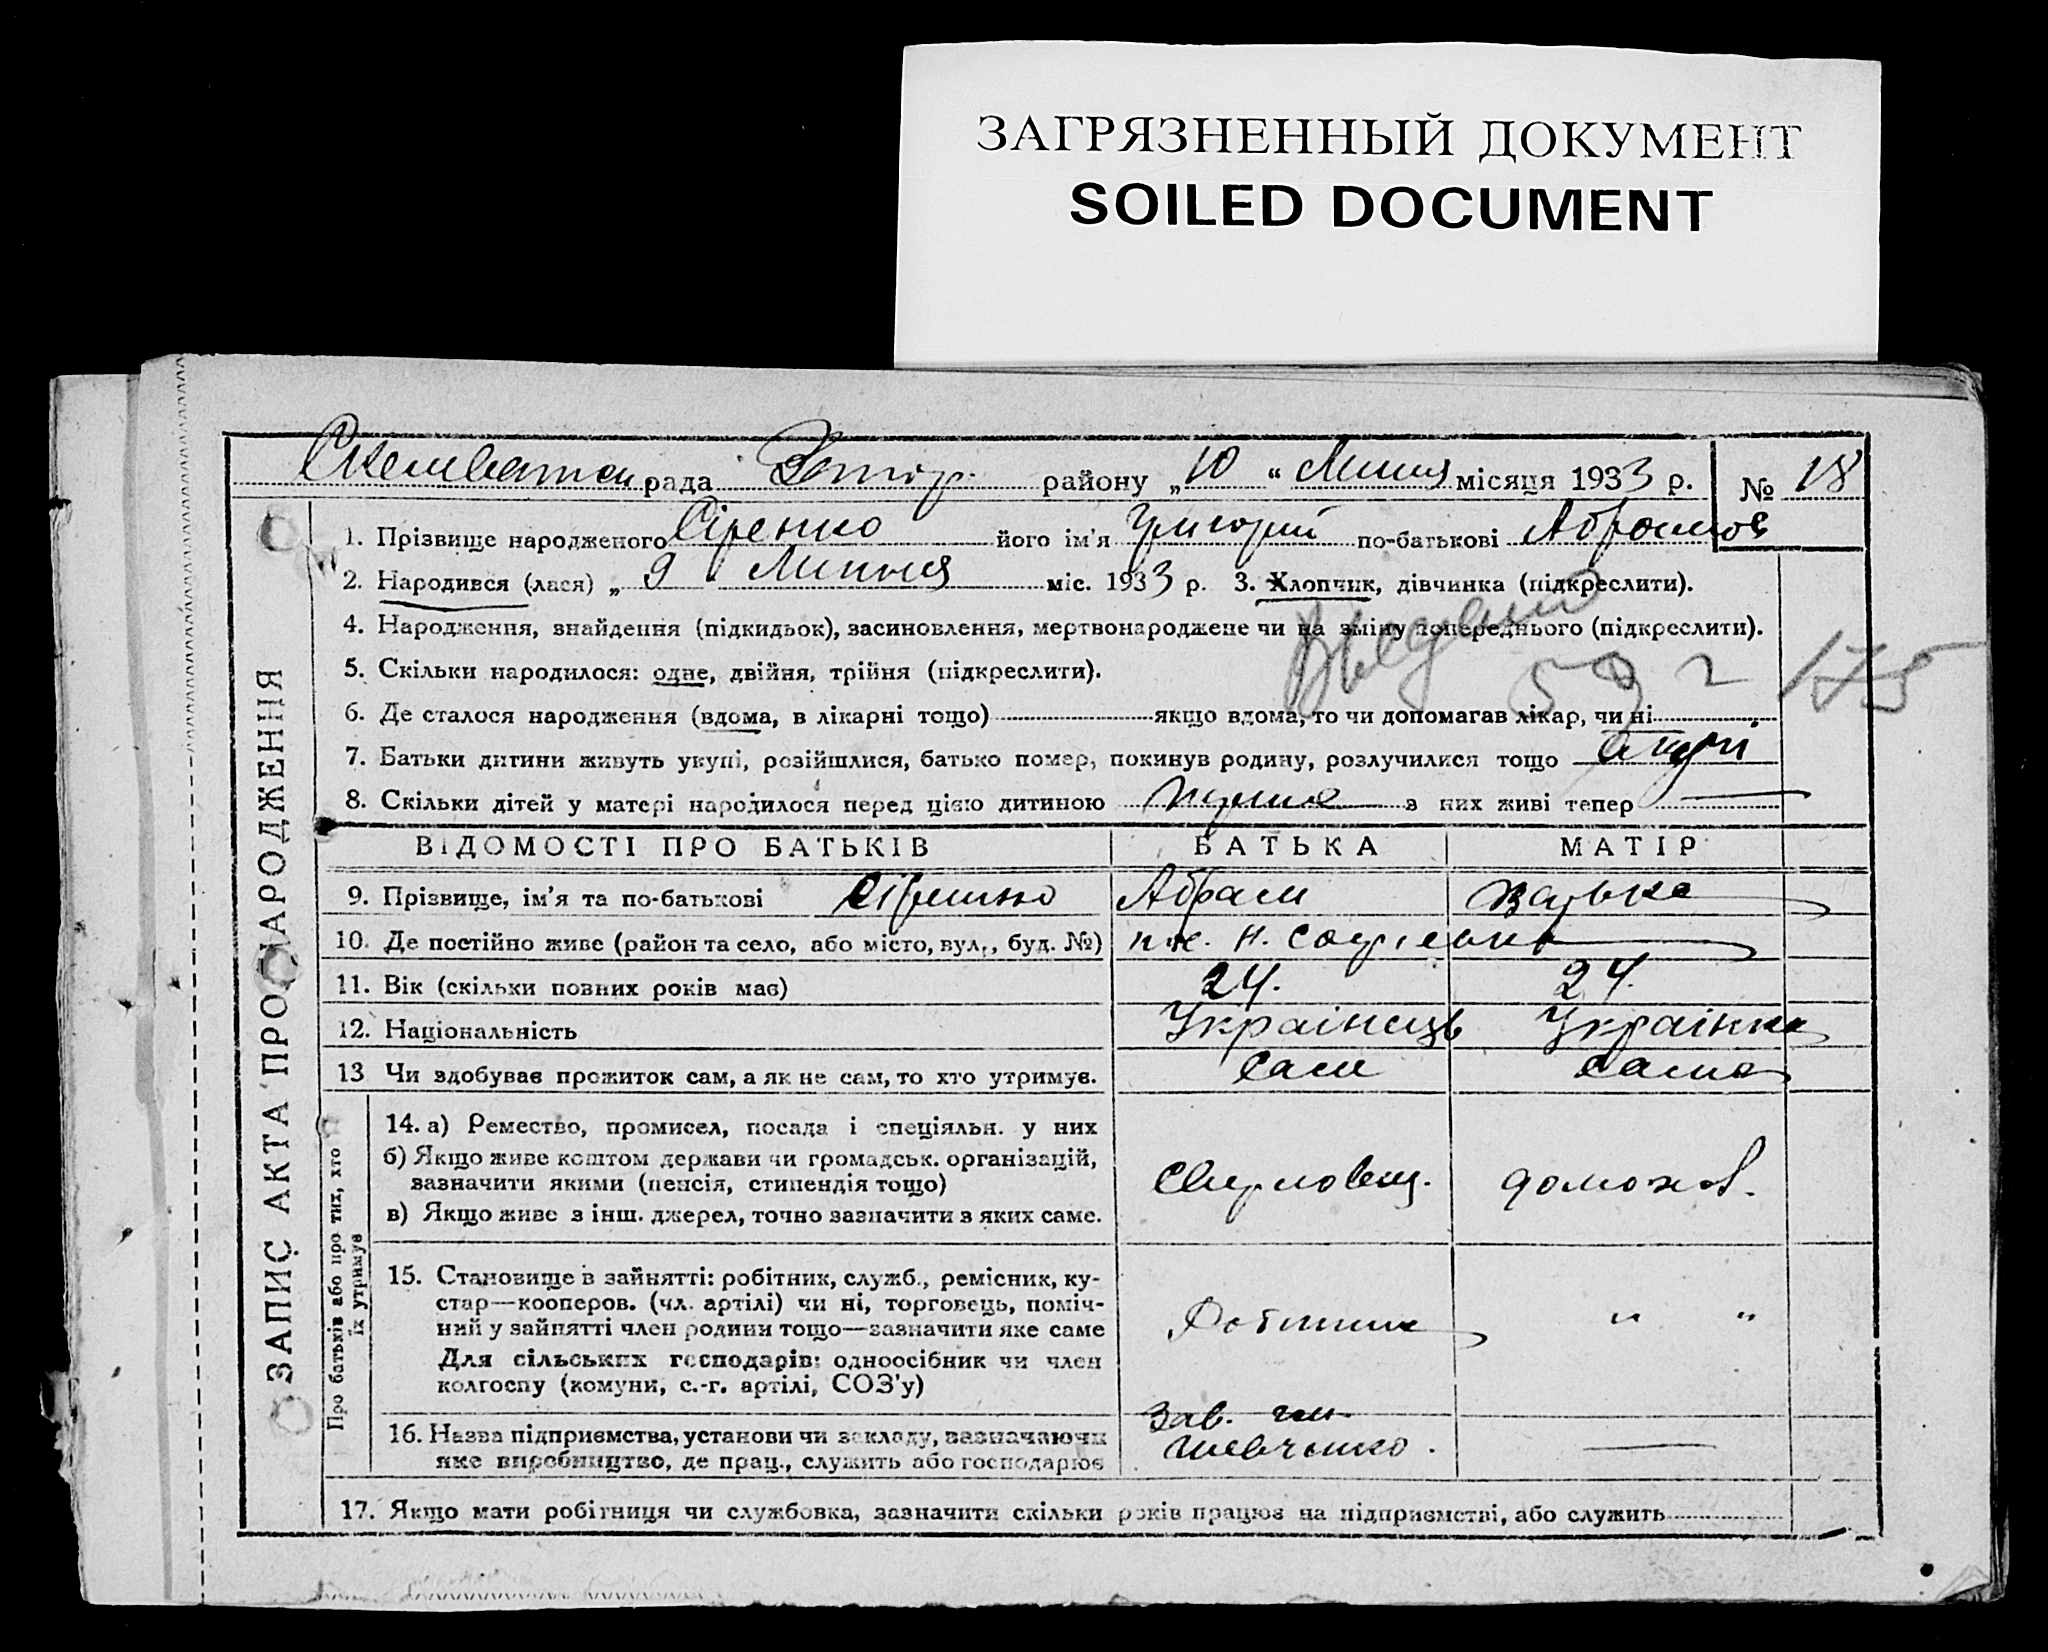 ЗАГРЯЗНЕННЫЙ ДОКУМЕНТ
SOILED DOCUMENT
рада району „10“ Липня місяця 1933 р. № 18
1. Прізвище народженого Сіренко його ім'я Григорій по-батькові Абрамов
2. Народився (лася) „9 Липня міс. 1933 р. 3. Хлопчик, дівчинка (підкреслити).
4. Народження, знайдення (підкидьок), засиновлення, мертвонароджене чи на зміну попереднього (підкреслити).
5. Скільки народилося: одне, двійня, трійня (підкреслити).
6. Де сталося народження (вдома, в лікарні тощо) якщо вдома, то чи допомагав лікар, чи ні
7. Батьки дитини живуть укупі, розійшлися, батько помер, покинув родину, розлучилися тощо
8. Скільки дітей у матері народилося перед цією дитиною з них живі тепер —
ВІДОМОСТІ ПРО БАТЬКІВ БАТЬКА МАТІР
9. Прізвище, ім'я та по-батькові Сіренко Абрам
10. Де постійно живе (район та село, або місто, вул., буд. №)
11. Вік (скільки повних років має) 24. 24.
12. Національність Українець Українка
13 Чи здобуває прожиток сам, а як не сам, то хто утримує. Сам сама
14. а) Ремество, промисел, посада і спеціяльн. у них
б) Якщо живе коштом держави чи громадськ. організацій,
зазначити якими (пенсія, стипендія тощо)
в) Якщо живе з інш. джерел, точно зазначити з яких саме.
домохоз.
15. Становище в зайнятті: робітник, служб., ремісник, ку-
стар—кооперов. (чл. артілі) чи ні, торговець, поміч-
ний у зайнятті член родини тощо—зазначити яке саме
Для сільських господарів: одноосібник чи член
колгоспу (комуни, с.-г. артілі, СОЗ'у)
Робітник " "
16. Назва підприємства, установи чи закладу, зазначаючи
яке виробництво, де прац., служить або господарює
Зав. ім.
Шевченко. —
17. Якщо мати робітниця чи службовка, зазначити скільки років працює на підприємстві, або служить
ЗАПИС АКТА ПРО НАРОДЖЕННЯ
Про батьків або про тих, хто
їх утримує
175